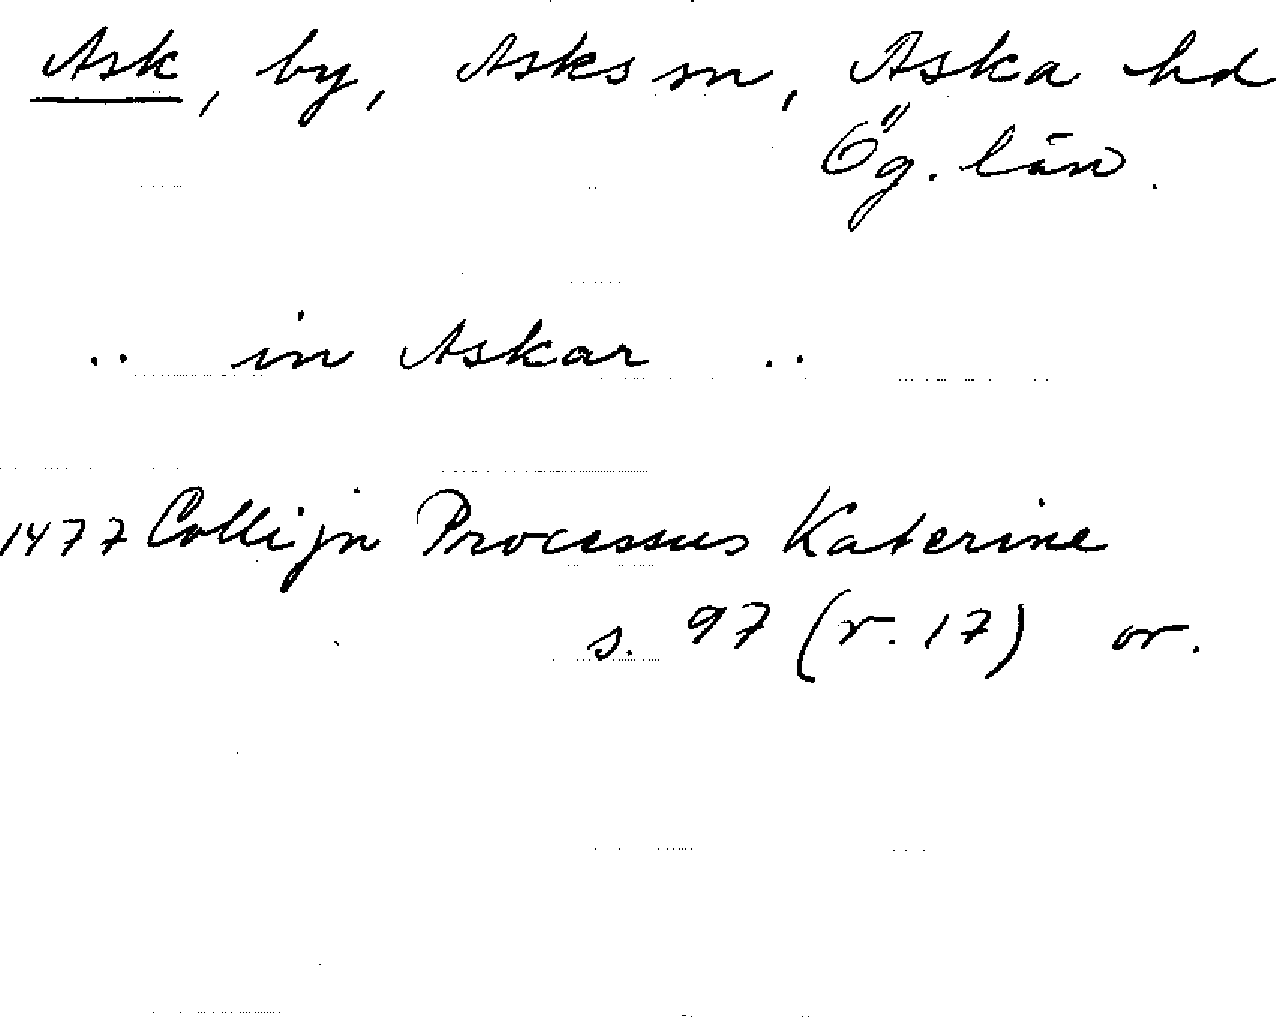 Ask, by, Asks sn, Aska hd
Ög. län.
.. in Askar ..
1477 Collijn Processus Katerine
s. 97 (r. 17) or.